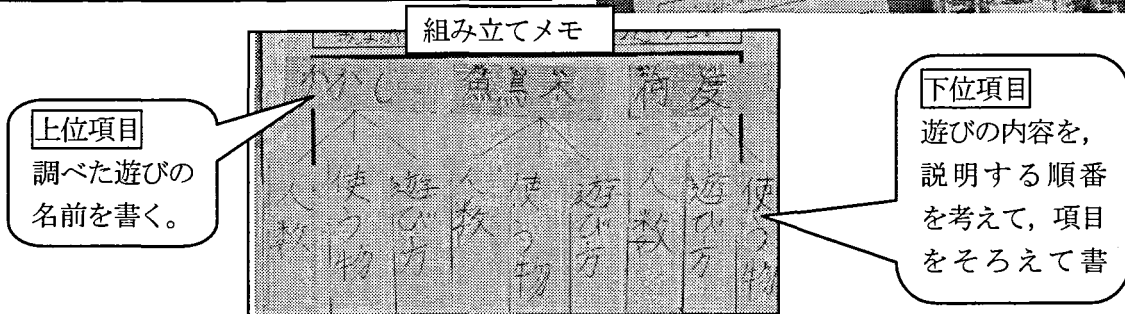 組み立てメモ
上位項目
調べた遊びの
名前を書く。
下位項目
遊びの内容を,
説明する順番
を考えて, 項目
をそろえて書
魚鳥
使う物
遊び方
人数
遊び方
使う物
人数
使う物
遊び方
人数